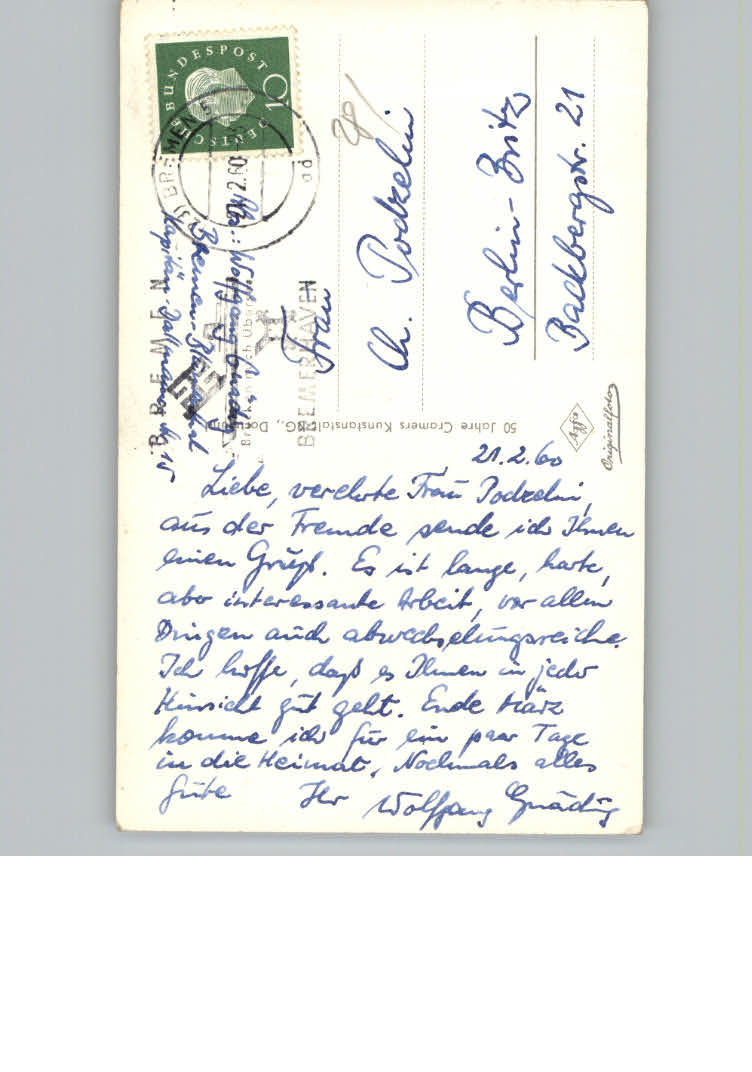 21.2.60
Liebe, verehrte Frau Podzelni,
aus der Fremde sende ich Ihnen
einen Gruß. Es ist lange, harte,
aber interessante Arbeit, vor allen
Dingen auch abwechslungsreiche.
Ich hoffe, daß es Ihnen in jeder
Hinsicht gut geht. Ende März
komme ich für ein paar Tage
in die Heimat. Nochmals alles
Gute Ihr Wolfgang Gnädig
Frau
Ch. Podzelni
Berlin-Britz
Backbergstr. 21
Abs.: Wolfgang Gnädig
Bremen-Blumenthal
DEUTSCHE BUNDESPOST
10
(23) BREMEN 5
2.60
ad
BREMEN
BREMERHAVEN
50 Jahre Cramers Kunstanstalt KG.,
Agfa
Originalfoto